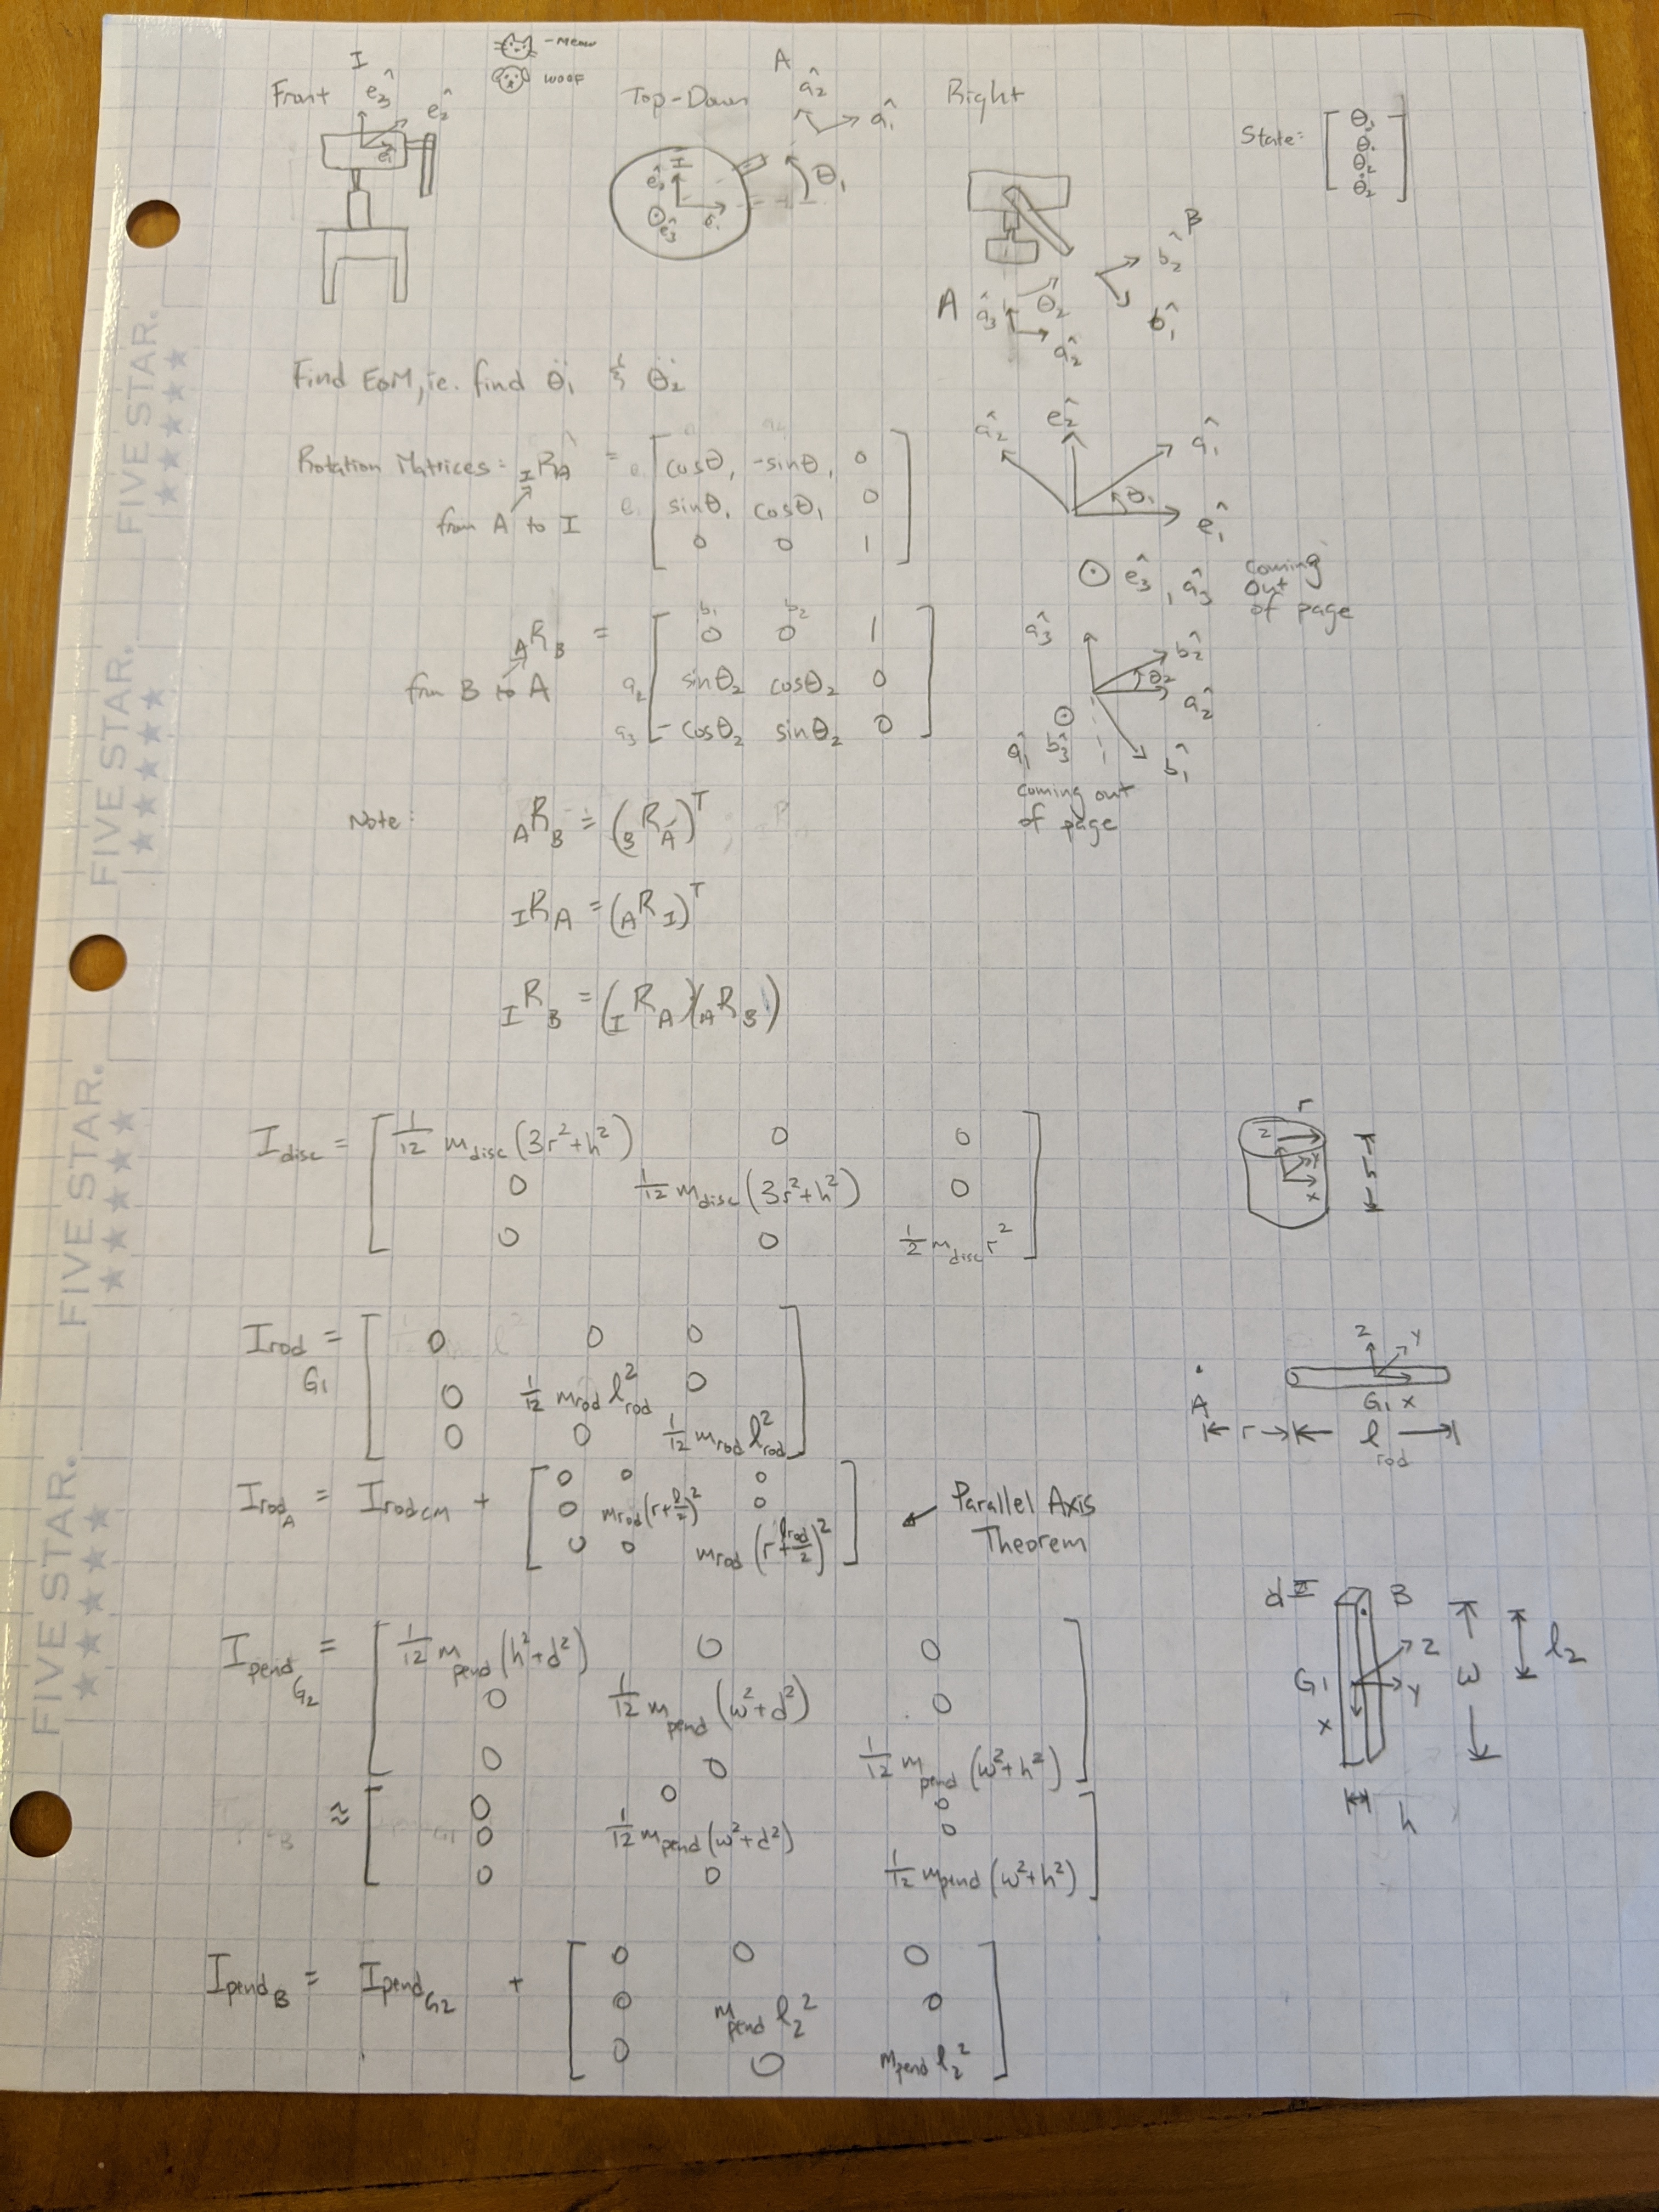 I
-meow
woof
Front
ê3
ê2
ê1
Top-Down
A
â2
â1
I
ê2
ê1
ê3
θ1
Right
B
b̂2
b̂1
A
â3
θ2
â2
State: [θ1 θ̇1 θ2 θ̇2]
Find EoM, ie. find θ̈1 & θ̈2
Rotation Matrices: IRA =
[cosθ1 -sinθ1 0
sinθ1 cosθ1 0
0 0 1]
from A to I
â2
ê2
â1
θ1
ê1
ê3, â3 coming out of page
ARB =
b1 b2
[0 0 1
a2 sinθ2 cosθ2 0
a3 -cosθ2 sinθ2 0]
from B to A
â3
b̂2
θ2
â2
b̂1
â1 b̂3
coming out
of page
Note: ARB = (BRA)^T
IRA = (ARI)^T
IRB = (IRA)(ARB)
Idisc =
[1/12 mdisc(3r²+h²) 0 0
0 1/12 mdisc(3r²+h²) 0
0 0 1/2 mdisc r²]
r
z
x
h
Irod G1 =
[0 0 0
0 1/12 mrod lrod² 0
0 0 1/12 mrod lrod²]
z
y
A
G1 x
r
l rod
Irod A = Irod CM +
[0 0 0
0 mrod(r+l/2)² 0
0 0 mrod(r+lrod/2)²]
Parallel Axis
Theorem
Ipend G2 =
[1/12 mpend(h²+d²) 0 0
0 1/12 mpend(w²+d²) 0
0 0 1/12 mpend(w²+h²)]
d
B
z
G1
y
x
w
l2
h
≈
[0 0 0
0 1/12 mpend(w²+d²) 0
0 0 1/12 mpend(w²+h²)]
Ipend B = Ipend G2 +
[0 0 0
0 mpend l2² 0
0 0 mpend l2²]
FIVE STAR.
FIVE STAR.
FIVE STAR.
FIVE STAR.